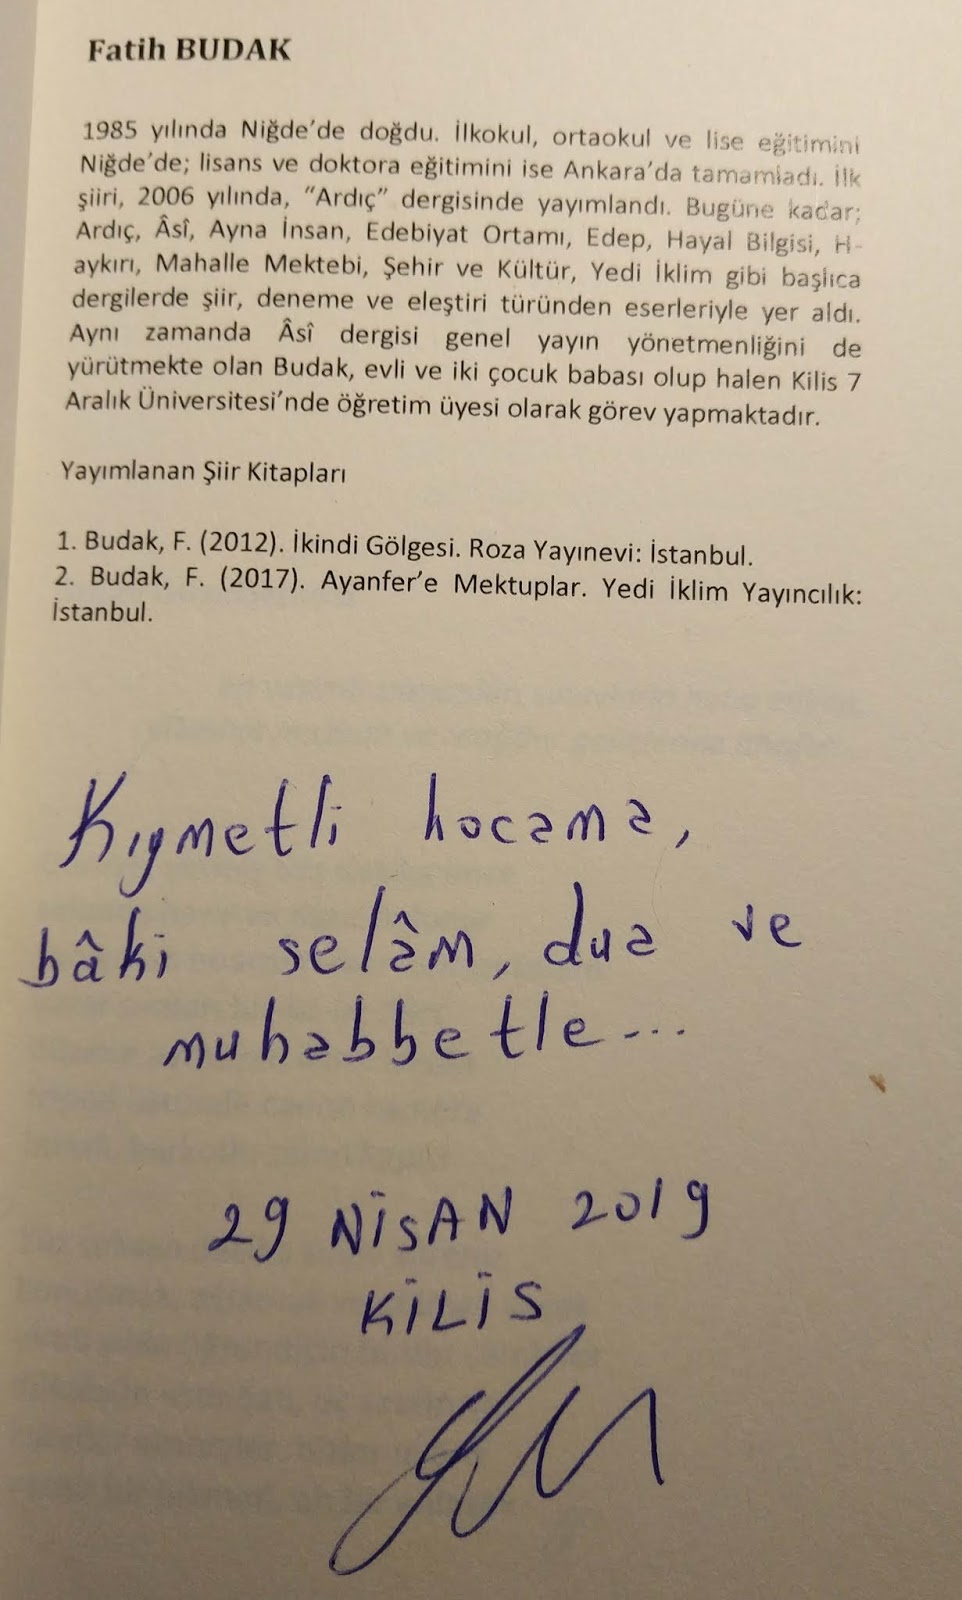 Fatih BUDAK
1985 yılında Niğde'de doğdu. İlkokul, ortaokul ve lise eğitimini
Niğde'de; lisans ve doktora eğitimini ise Ankara'da tamamladı. İlk
şiiri, 2006 yılında, "Ardıç" dergisinde yayımlandı. Bugüne kadar;
Ardıç, Âsî, Ayna İnsan, Edebiyat Ortamı, Edep, Hayal Bilgisi, H-
aykırı, Mahalle Mektebi, Şehir ve Kültür, Yedi İklim gibi başlıca
dergilerde şiir, deneme ve eleştiri türünden eserleriyle yer aldı.
Aynı zamanda Âsî dergisi genel yayın yönetmenliğini de
yürütmekte olan Budak, evli ve iki çocuk babası olup halen Kilis 7
Aralık Üniversitesi'nde öğretim üyesi olarak görev yapmaktadır.
Yayımlanan Şiir Kitapları
1. Budak, F. (2012). İkindi Gölgesi. Roza Yayınevi: İstanbul.
2. Budak, F. (2017). Ayanfer'e Mektuplar. Yedi İklim Yayıncılık:
İstanbul.
Kıymetli hocama,
bâki selâm, dua ve
muhabbetle...
29 NİSAN 2019
KİLİS